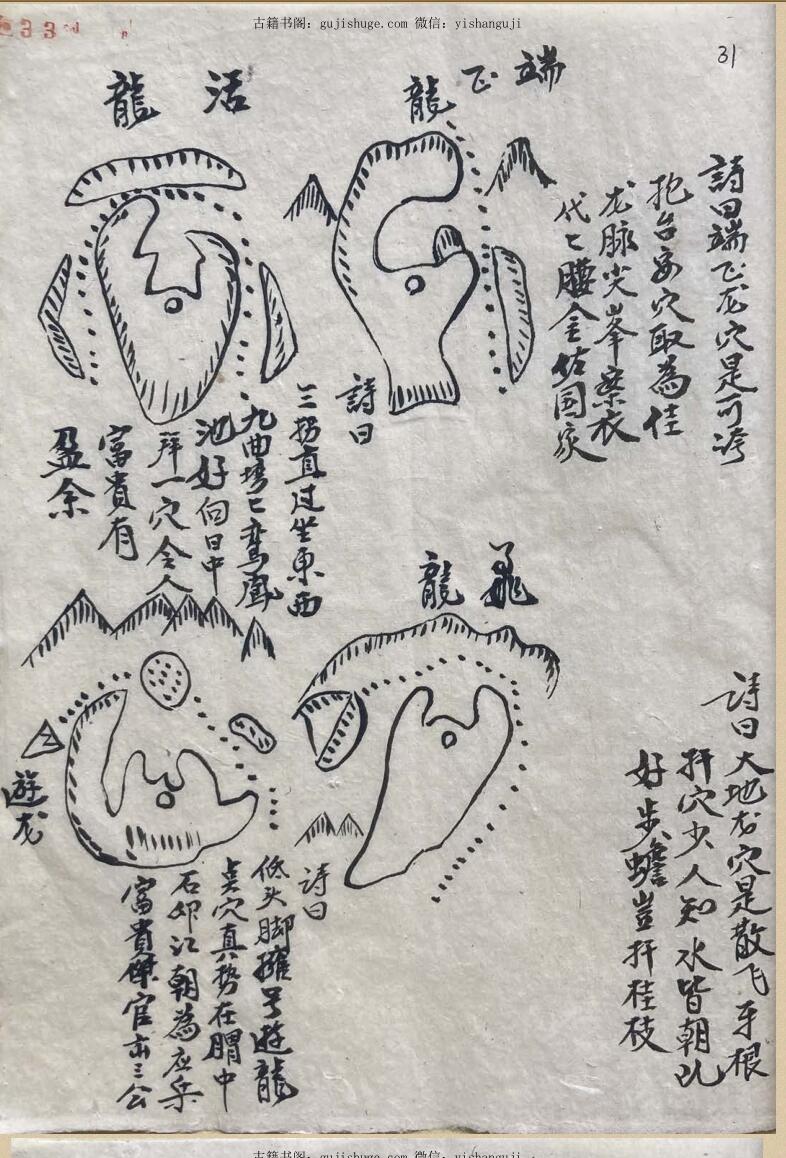 古籍书阁: gujishuge.com 微信: yishanguji
31
端飞龍
詩曰端飞龙穴是可冷
抱台安穴取為佳
龙脉尖峯案衣
代匕腰金佐国家
活龍
詩曰
三拐直过坐東西
九曲塆匕鸾鳳
池好向日中
拜一穴令人
富貴有
盈余
飛龍
詩曰大地龙穴是散飞牙根
扦穴少人知水皆朝此
好步蟾豈扦桂枝
遊龙
詩曰
低头脚擁号遊龍
点穴真势在腰中
石卯江朝為应乐
富貴傑官市三公
古籍书阁: gujishuge.com 微信: yishanguji